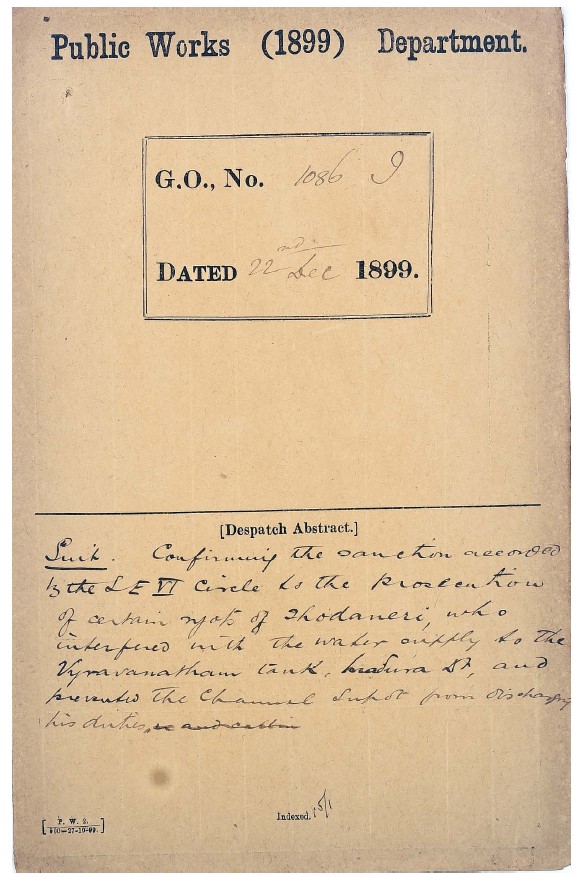 Public Works (1899) Department.
G.O., No. 1086 I
DATED 22nd Dec 1899.
[Despatch Abstract.]
Suit. Confirming the sanction accorded
by the S E VI Circle to the prosecution
of certain ryots of Thodaneri, who
interfered with the water supply to the
Vyravanatham tank, Madura Dt, and
prevented the Channel Supdt from discharging
his duties,
Indexed. 5/1
[P. W. 2.
900—27-10-99.]